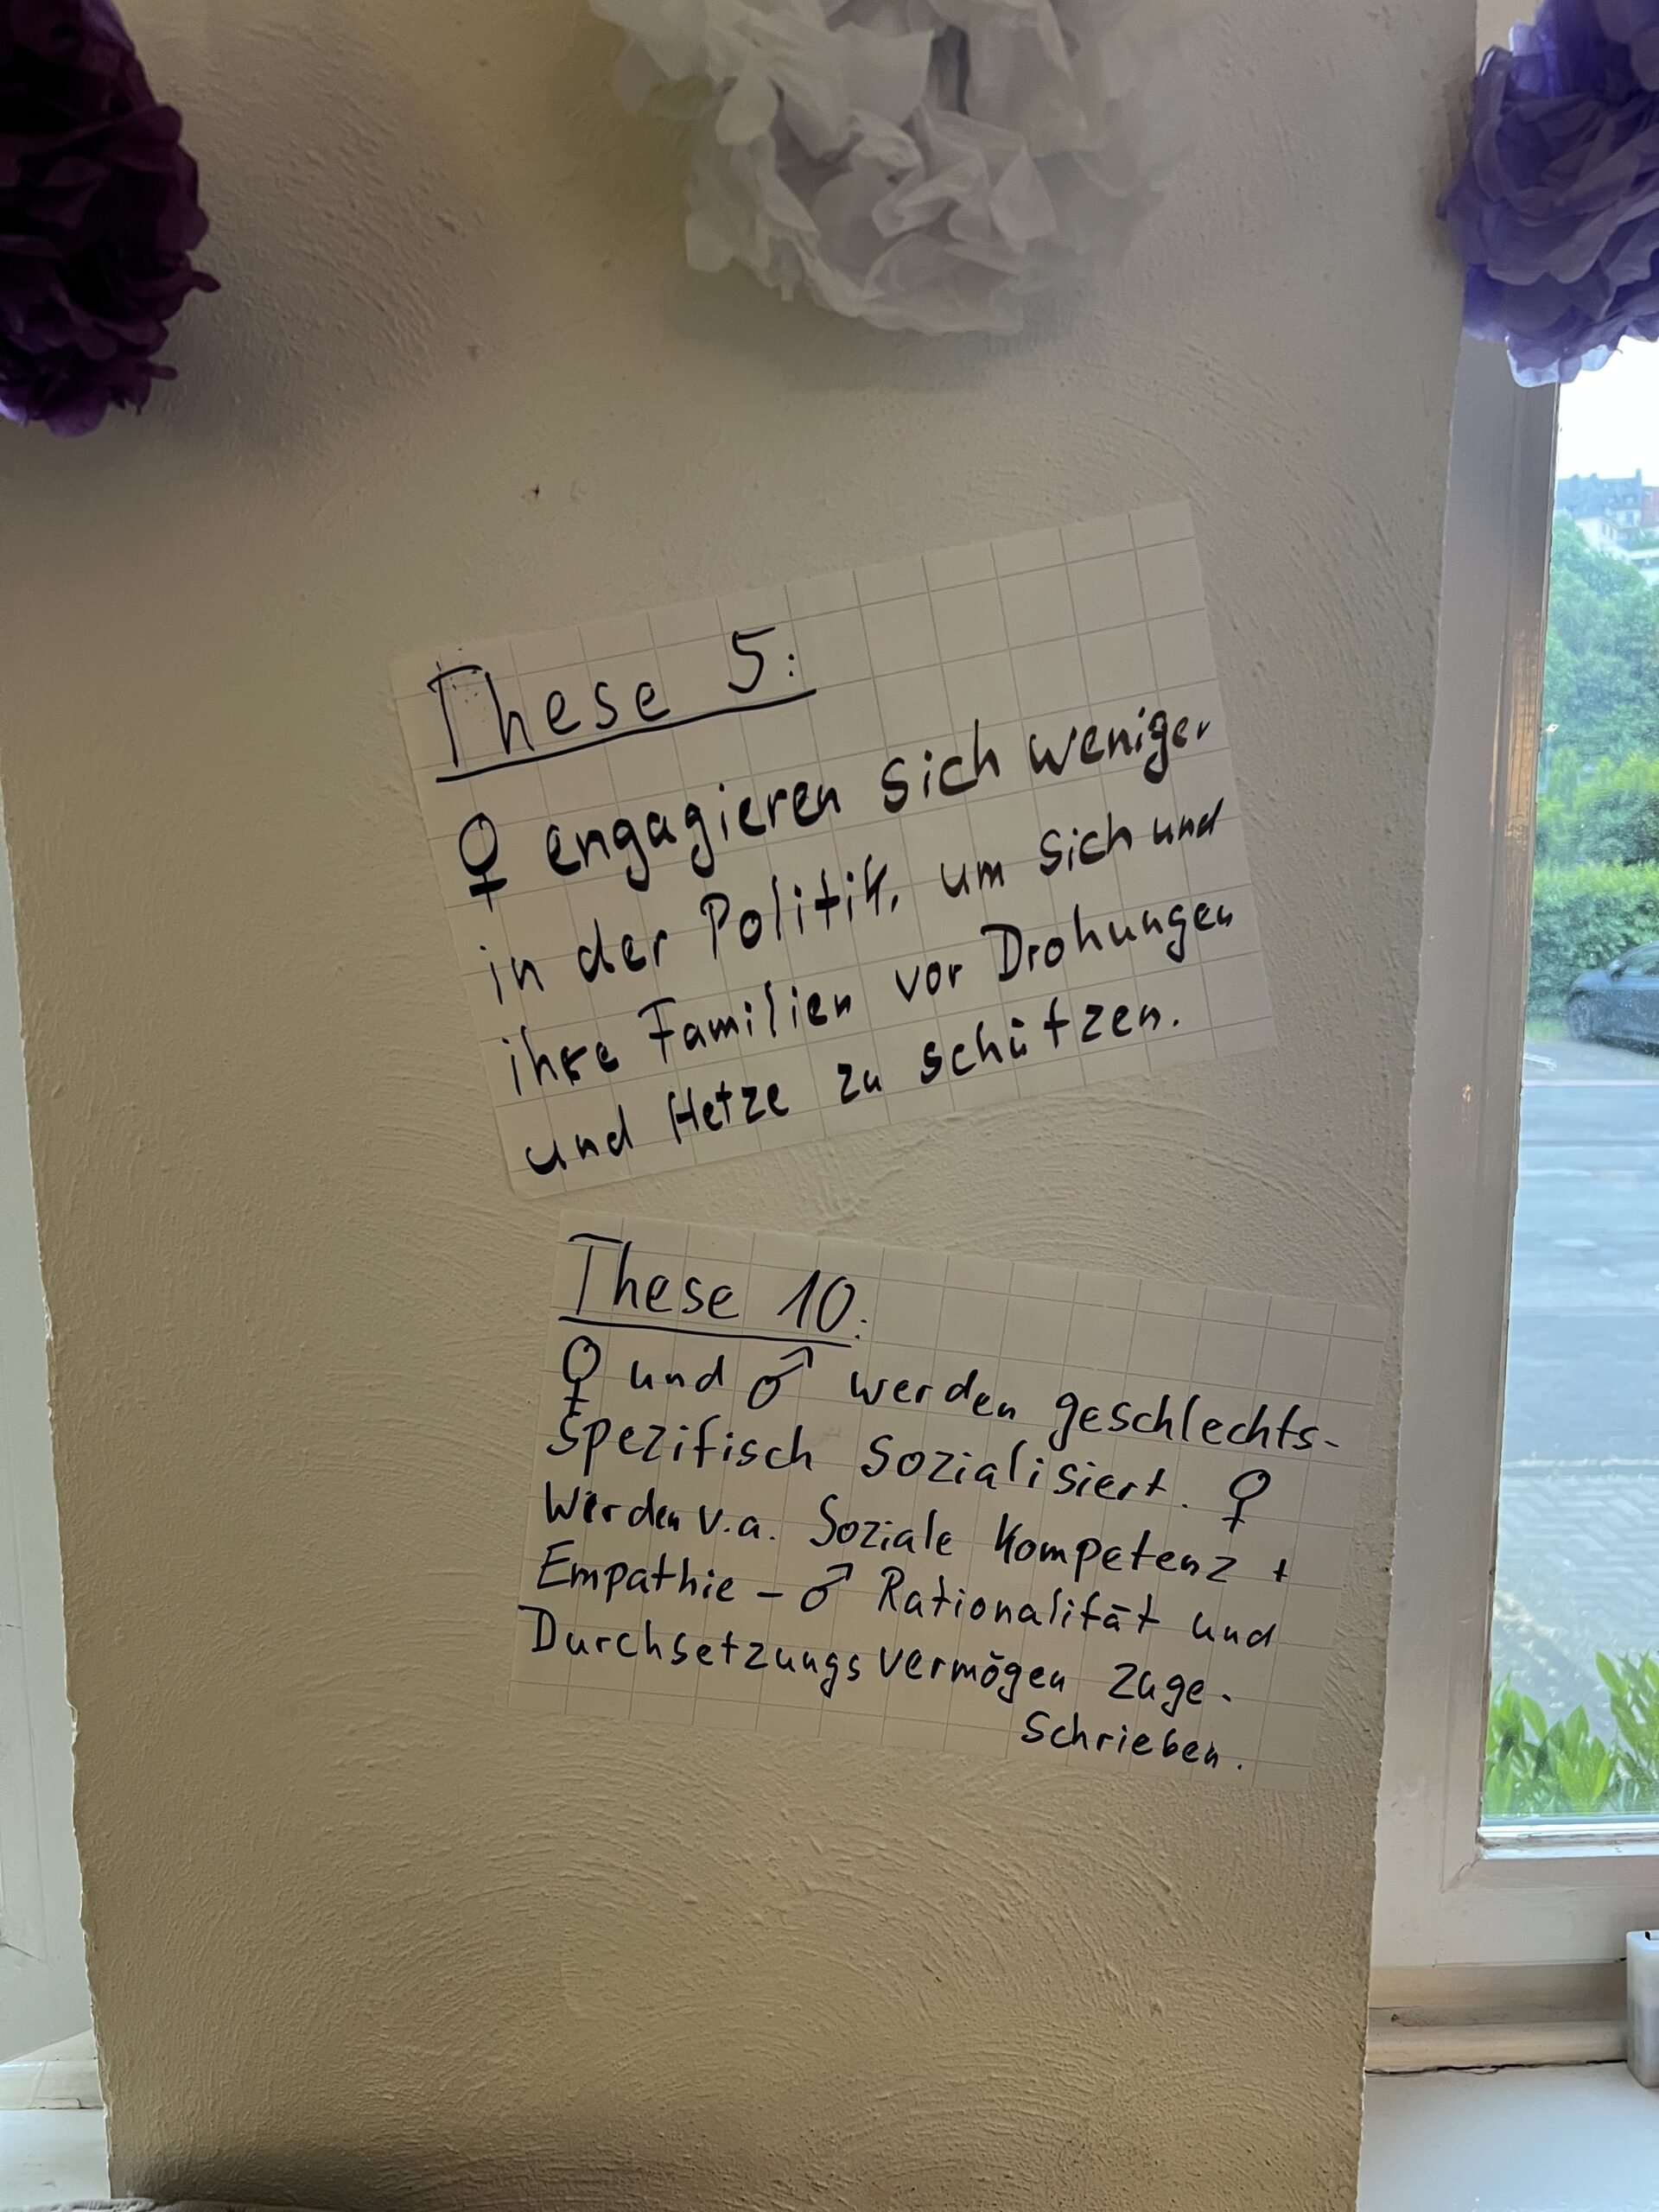 These 5:
♀ engagieren sich weniger
in der Politik, um sich und
ihre Familien vor Drohungen
und Hetze zu schützen.
These 10:
♀ und ♂ werden geschlechts-
spezifisch sozialisiert. ♀
werden v.a. Soziale Kompetenz +
Empathie - ♂ Rationalität und
Durchsetzungsvermögen zuge-
schrieben.